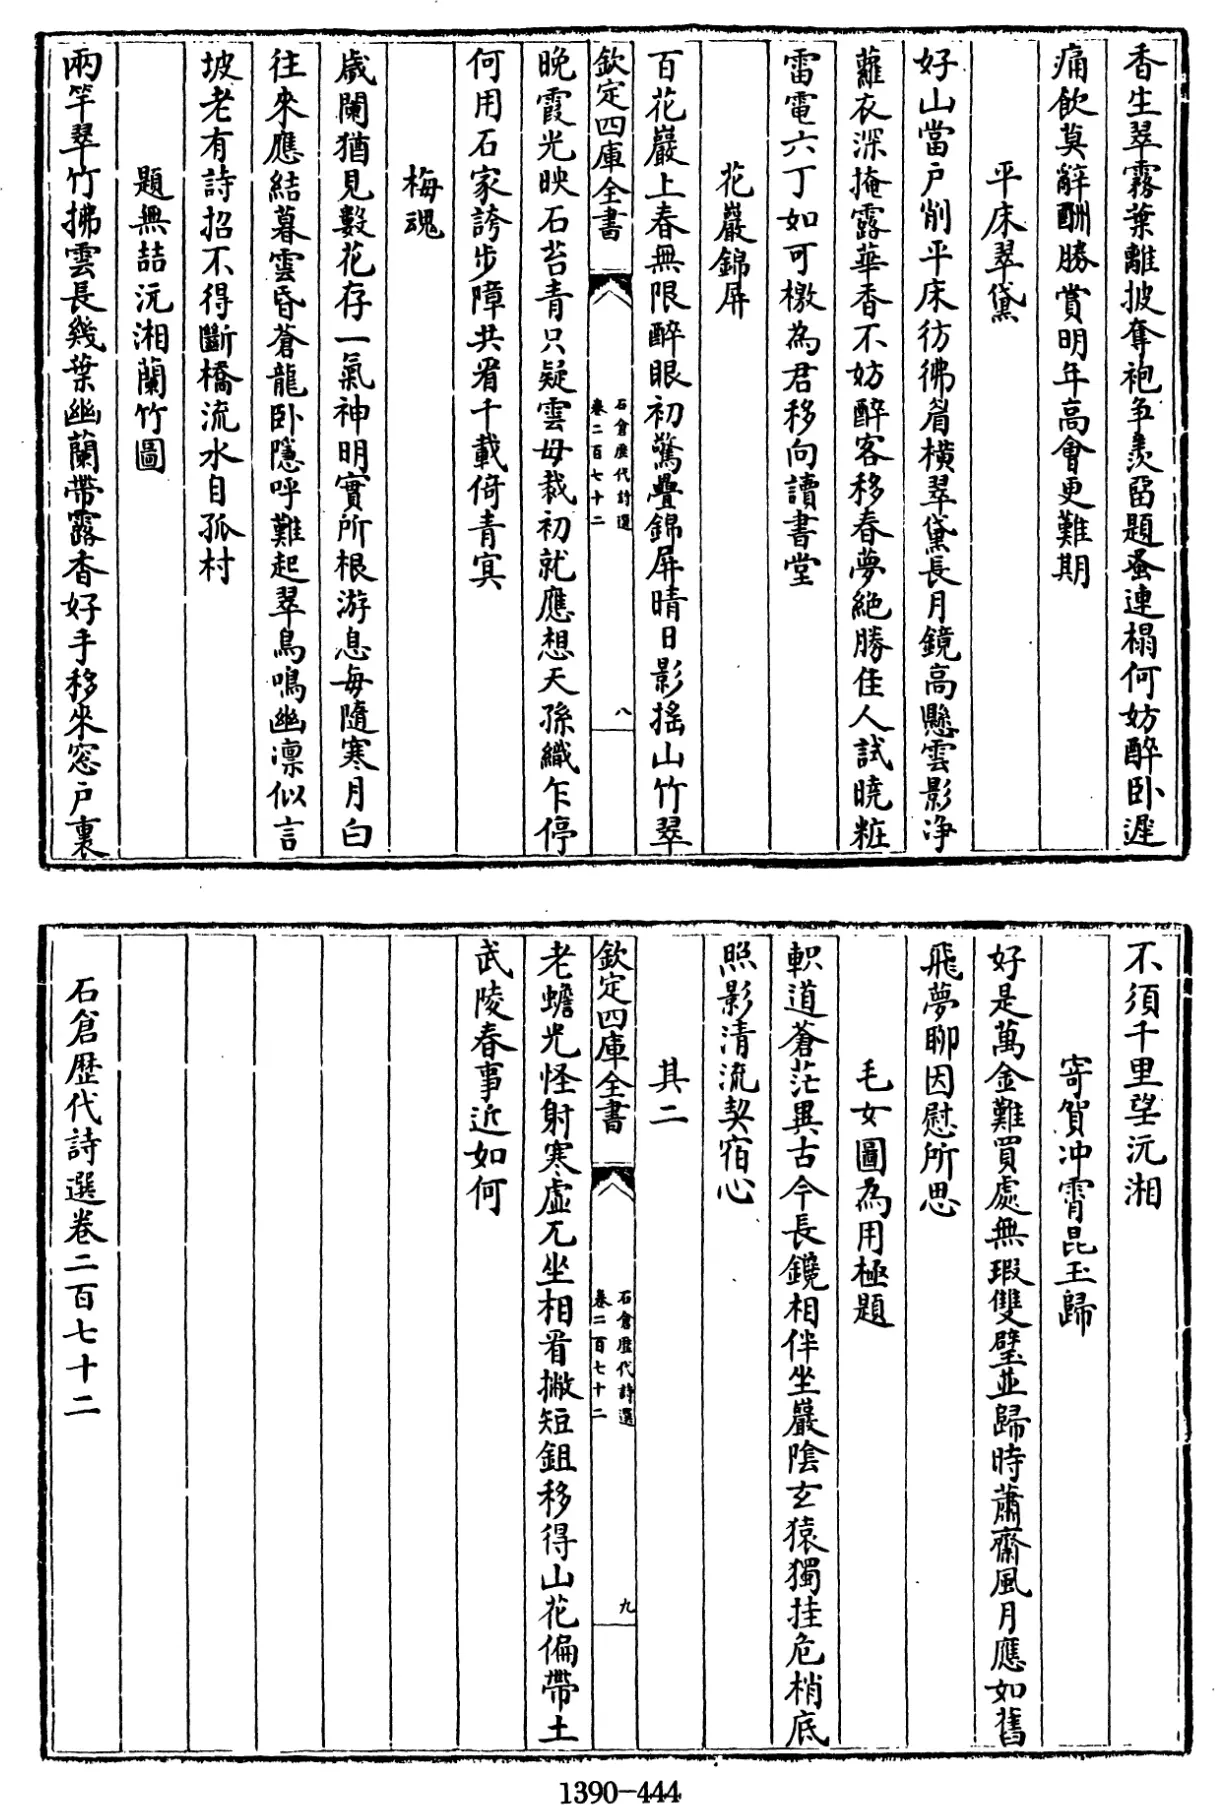 香生翠霧葉離披奪袍争羨留題蚤連榻何妨醉卧遲
痛飲莫辭酬勝賞明年高會更難期
平床翠黛
好山當户削平床彷彿眉横翠黛長月鏡高懸雲影浄
蘿衣深掩露華香不妨醉客移春夢絶勝佳人試曉粧
雷電六丁如可檄為君移向讀書堂
花巖錦屏
百花巖上春無限醉眼初驚疊錦屏晴日影揺山竹翠
欽定四庫全書
石倉歴代詩選
卷二百七十二
八
晩霞光映石苔青只疑雲母裁初就應想天孫織乍停
何用石家誇步障共看千載倚青㝠
梅魂
歳闌猶見數花存一氣神明實所根游息每隨寒月白
往來應結暮雲昏蒼龍卧隠呼難起翠鳥鳴幽凛似言
坡老有詩招不得斷橋流水自孤村
題無喆沅湘蘭竹圖
兩竿翠竹拂雲長幾葉幽蘭帶露香好手移來窓户裏
不須千里望沅湘
寄賀冲霄昆玉歸
好是萬金難買處無瑕雙璧並歸時蕭齋風月應如舊
飛夢聊因慰所思
毛女圖為用極題
軹道蒼茫異古今長鑱相伴坐巖陰玄猿獨挂危梢底
照影清流契宿心
其二
欽定四庫全書
石倉歴代詩選
卷二百七十二
九
老蟾光怪射寒虚兀坐相看撇短鉏移得山花偏帶土
武陵春事近如何
石倉歴代詩選卷二百七十二
1390-444